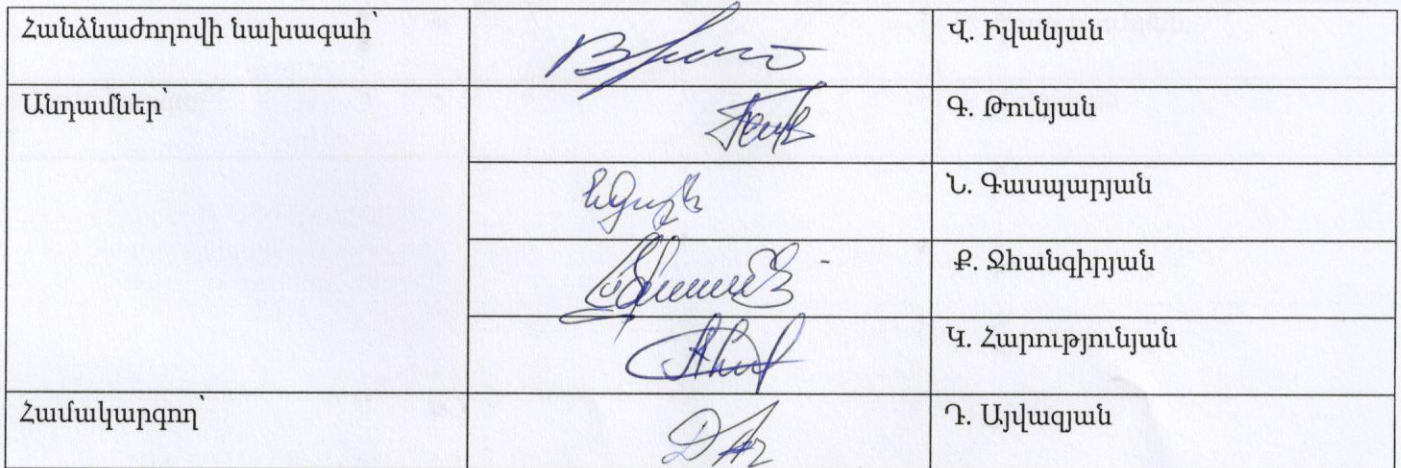 Հանձնաժողովի նախագահ՝ Վ. Իվանյան
Անդամներ՝ Գ. Թունյան
Ն. Գասպարյան
Ք. Ջհանգիրյան
Կ. Հարությունյան
Համակարգող՝ Դ. Այվազյան